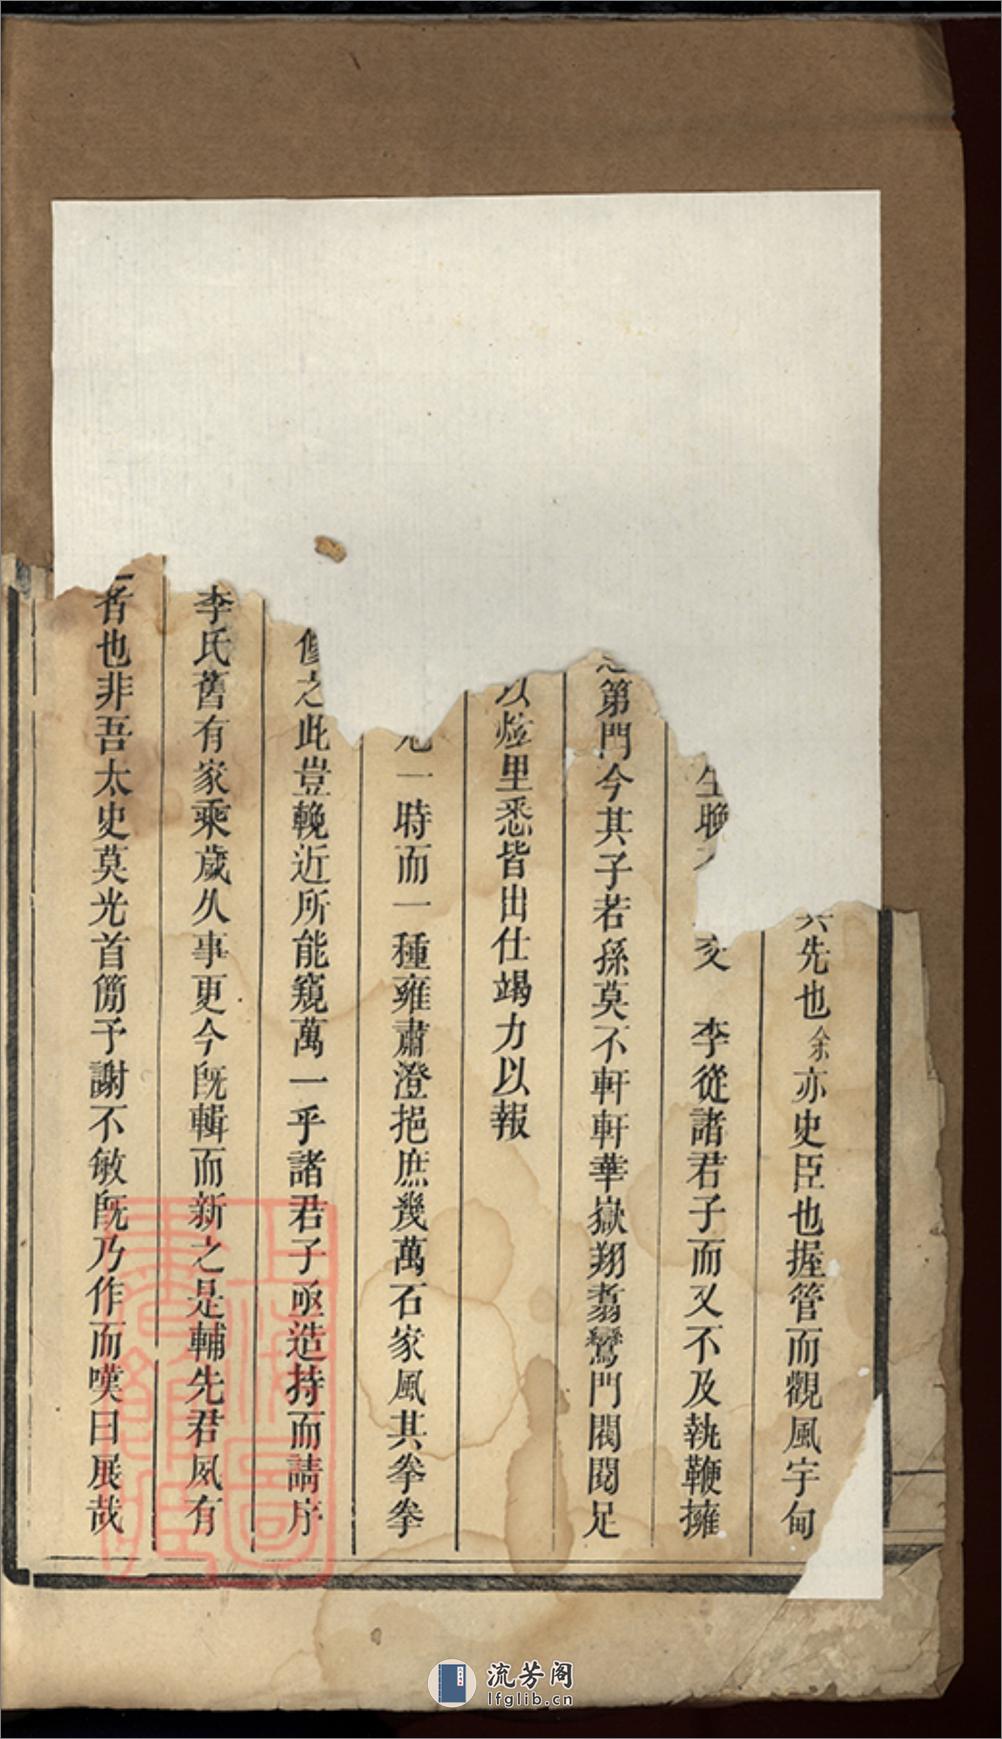 先也余亦史臣也握管而觀風宇甸
生晚 李從諸君子而又不及執鞭擁
第門今其子若孫莫不軒軒華嶽翔翥鸞門閥閱足
以焰里悉皆出仕竭力以報
一時而一種雍肅澄挹庶幾萬石家風其拳拳
修之此豈輓近所能窺萬一乎諸君子亟造持而請序
李氏舊有家乘歲久事更今旣輯而新之是輔先君夙有
者也非吾太史莫光首簡予謝不敏旣乃作而嘆曰展哉
上海圖書館藏
流芳阁
lfglib.cn